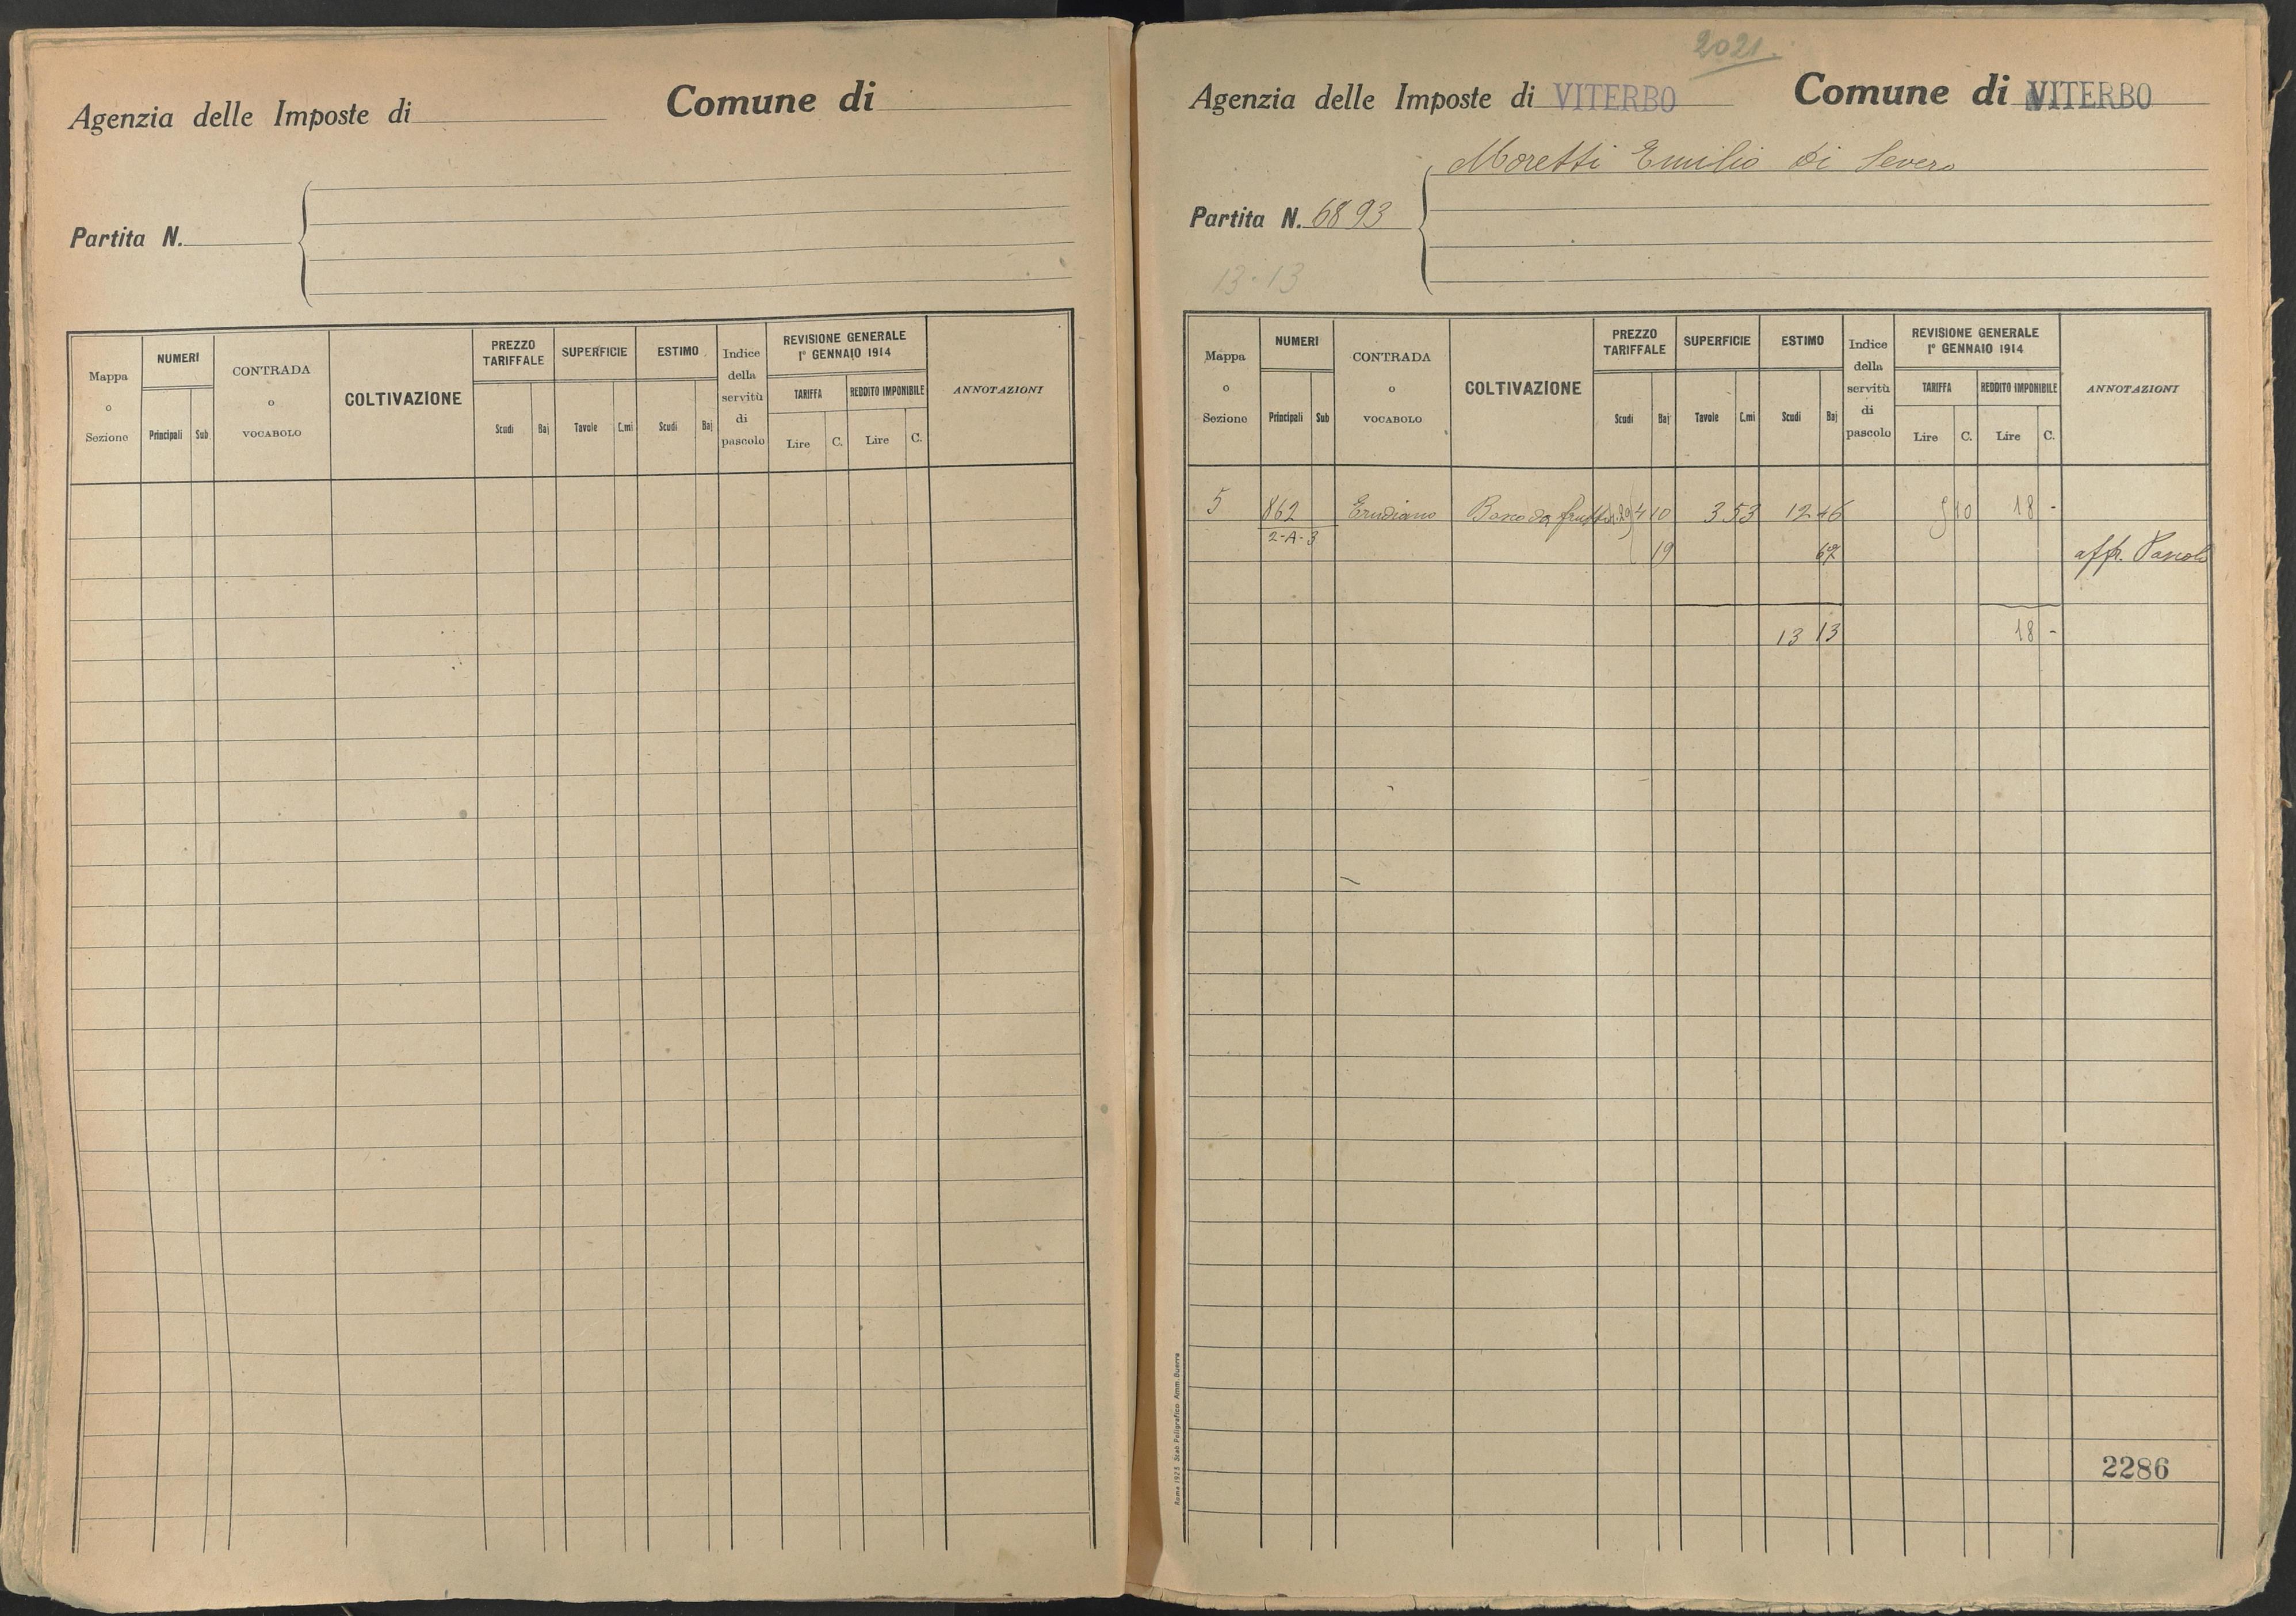 Agenzia delle Imposte di
Comune di
Partita N.
Mappa o Sezione
NUMERI
Principali
Sub
CONTRADA o VOCABOLO
COLTIVAZIONE
PREZZO TARIFFALE
Scudi
Baj
SUPERFICIE
Tavole
C.mi
ESTIMO
Scudi
Baj
Indice della servitù di pascolo
REVISIONE GENERALE
1° GENNAIO 1914
TARIFFA
REDDITO IMPONIBILE
Lire
C.
Lire
C.
ANNOTAZIONI
2021.
Agenzia delle Imposte di VITERBO
Comune di VITERBO
Moretti Emilio di Severo
Partita N. 6893
13-13
Mappa o Sezione
NUMERI
Principali
Sub
CONTRADA o VOCABOLO
COLTIVAZIONE
PREZZO TARIFFALE
Scudi
Baj
SUPERFICIE
Tavole
C.mi
ESTIMO
Scudi
Baj
Indice della servitù di pascolo
REVISIONE GENERALE
1° GENNAIO 1914
TARIFFA
REDDITO IMPONIBILE
Lire
C.
Lire
C.
ANNOTAZIONI
5 862 da 4 10 3 53 12 46 5 10 18 -
2-A-3
19 67 affr. Pascolo
13 13 18 -
Roma 1925 Stab. Poligrafico Amm. Guerra
2286